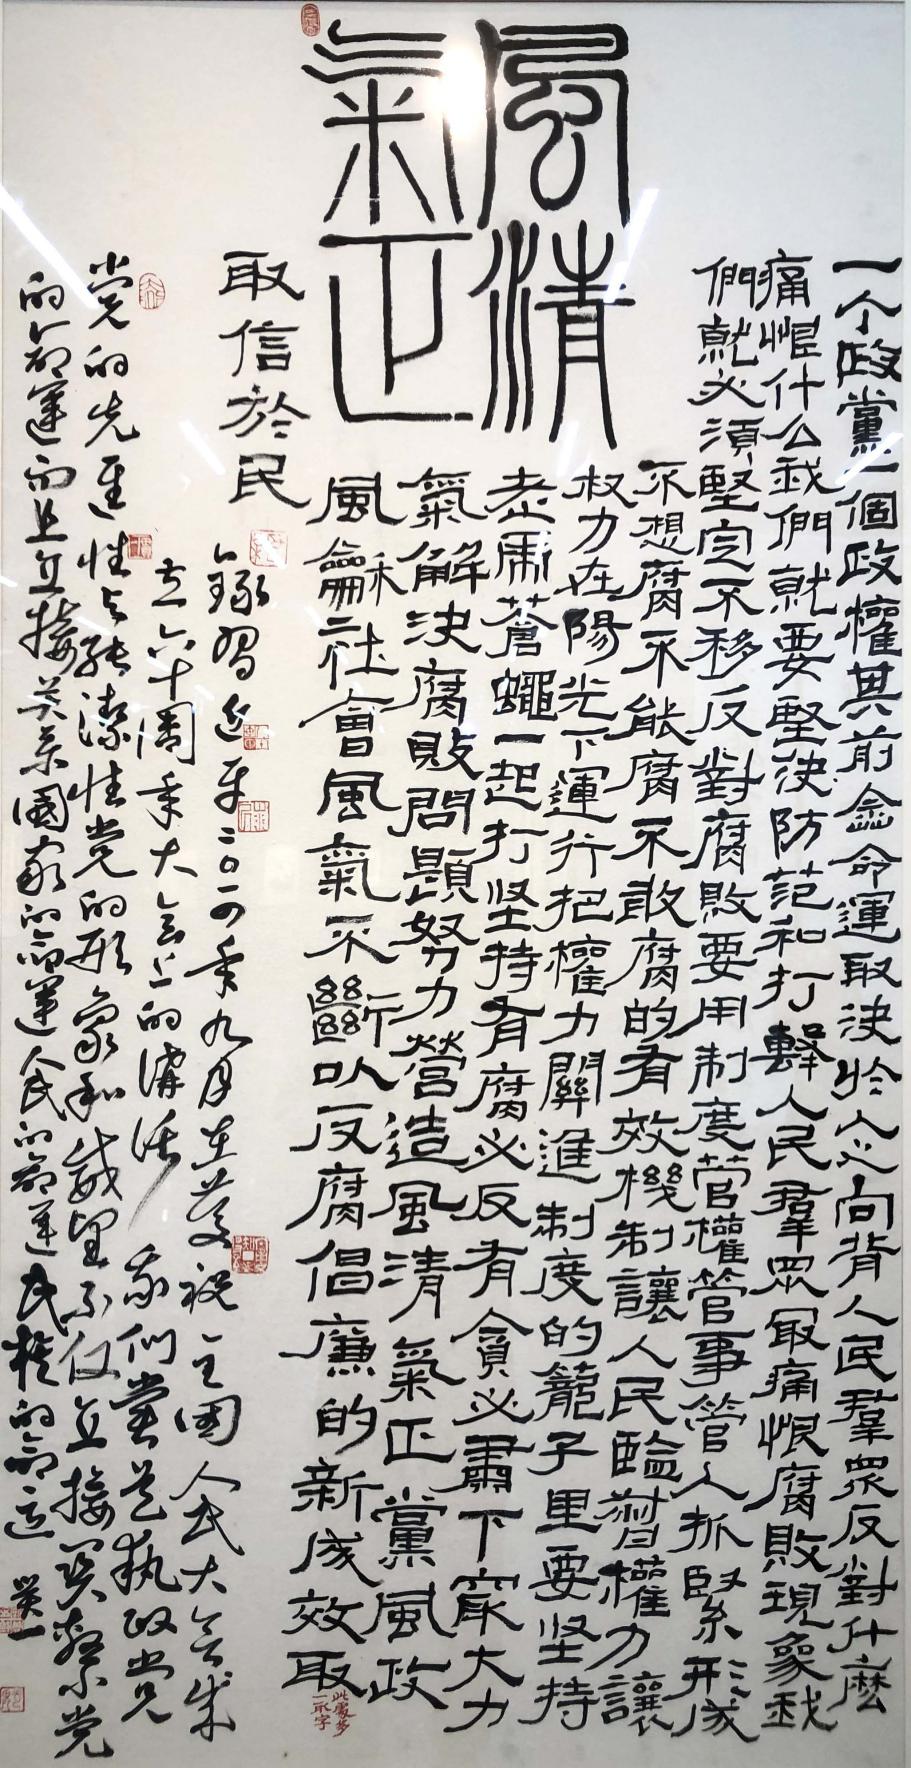 風清
氣正
一个政黨一個政權其前途命運取決於人心向背人民羣眾反對什麼
痛恨什么我們就要堅決防范和打擊人民羣眾最痛恨腐敗現象我
們就必須堅定不移反對腐敗要用制度管權管事管人抓緊形成
不想腐不能腐不敢腐的有效機制讓人民監督權力讓
权力在陽光下運行把權力關進制度的籠子里要坚持
老虎蒼蠅一起打坚持有腐必反有貪必肅下最大力
氣解決腐敗問題努力營造風清氣正黨風政
風龢社會風氣不斷以反腐倡廉的新成效取
此處多一取字
取信於民
錄習近平二〇一四年九月在慶祝全國人民大会成
立六十周年大会上的講话 我们党是执政党
党的先進性与純潔性党的形象和威望不仅直接关系党
的命運而且直接关系國家的命運人民的命運民族的命运